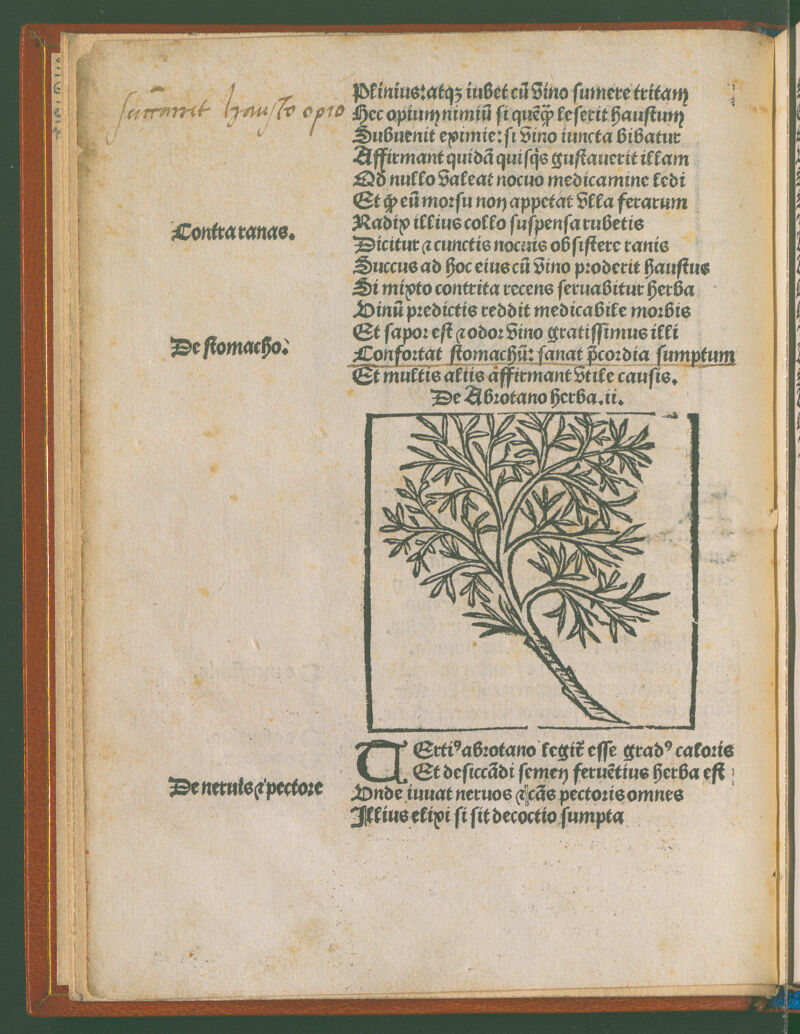 Plinius: atqꝫ iubet cũ Vino sumere tritam
hausto opio
Hec opium nimiũ si quẽꝙ̃ leserit haustum
Subuenit eximie: si Vino iuncta bibatur
Affirmant quidã quisq̃s gustauerit illam
Qd nullo Valeat nocuo medicamine ledi
Et ꝙ eũ morsu non appetat Vlla ferarum
Radix illius collo suspensa rubetis
Contra ranas.
Dicitur ⁊ cunctis nocuis obsistere ranis
Succus ad hoc eius cũ Vino proderit haustus
Si mixto contrita recens seruabitur herba
Vinũ predictis reddit medicabile morbis
Et sapor est ⁊ odor Vino gratissimus illi
De stomacho.
Confortat stomachũ: sanat p̃cordia sumptum
Et multis aliis affirmant Vtile causis.
De Abrotano herba.ii.
TErtiꝰ abrotano legit̃ esse gradꝰ caloris
Et desiccãdi semen feruẽtius herba est
De neruis ⁊ pectore
Vnde iuuat neruos ⁊ cãs pectoris omnes
Illius elixi si sit decoctio sumpta